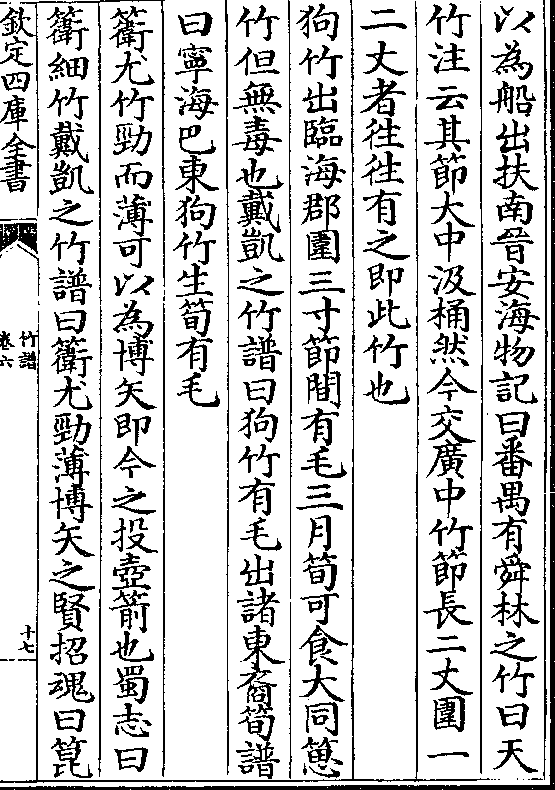 以為船出扶南晉安海物記曰番禺有舜林之竹曰天
竹注云其節大中汲桶然今交廣中竹節長二丈圍一
二丈者往往有之即此竹也
狗竹出臨海郡圍三寸節間有毛三月筍可食大同箽
竹但無毒也戴凱之竹譜曰狗竹有毛出諸東裔筍譜
曰寧海巴東狗竹生筍有毛
䉜尤竹勁而薄可以為博矢即今之投壺箭也蜀志曰
䉜細竹戴凱之竹譜曰䉜尤勁薄博矢之賢招魂曰箟
欽定四庫全書
竹譜
卷六
十七